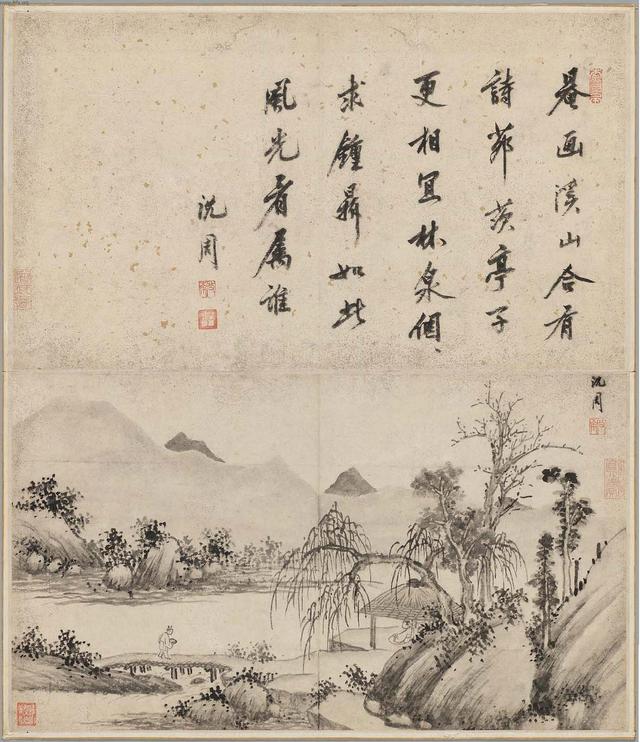 罨画溪山合有
詩茆茨亭子
更相宜林泉個、
求鍾鼎如此
風光看屬誰
沈周
沈周